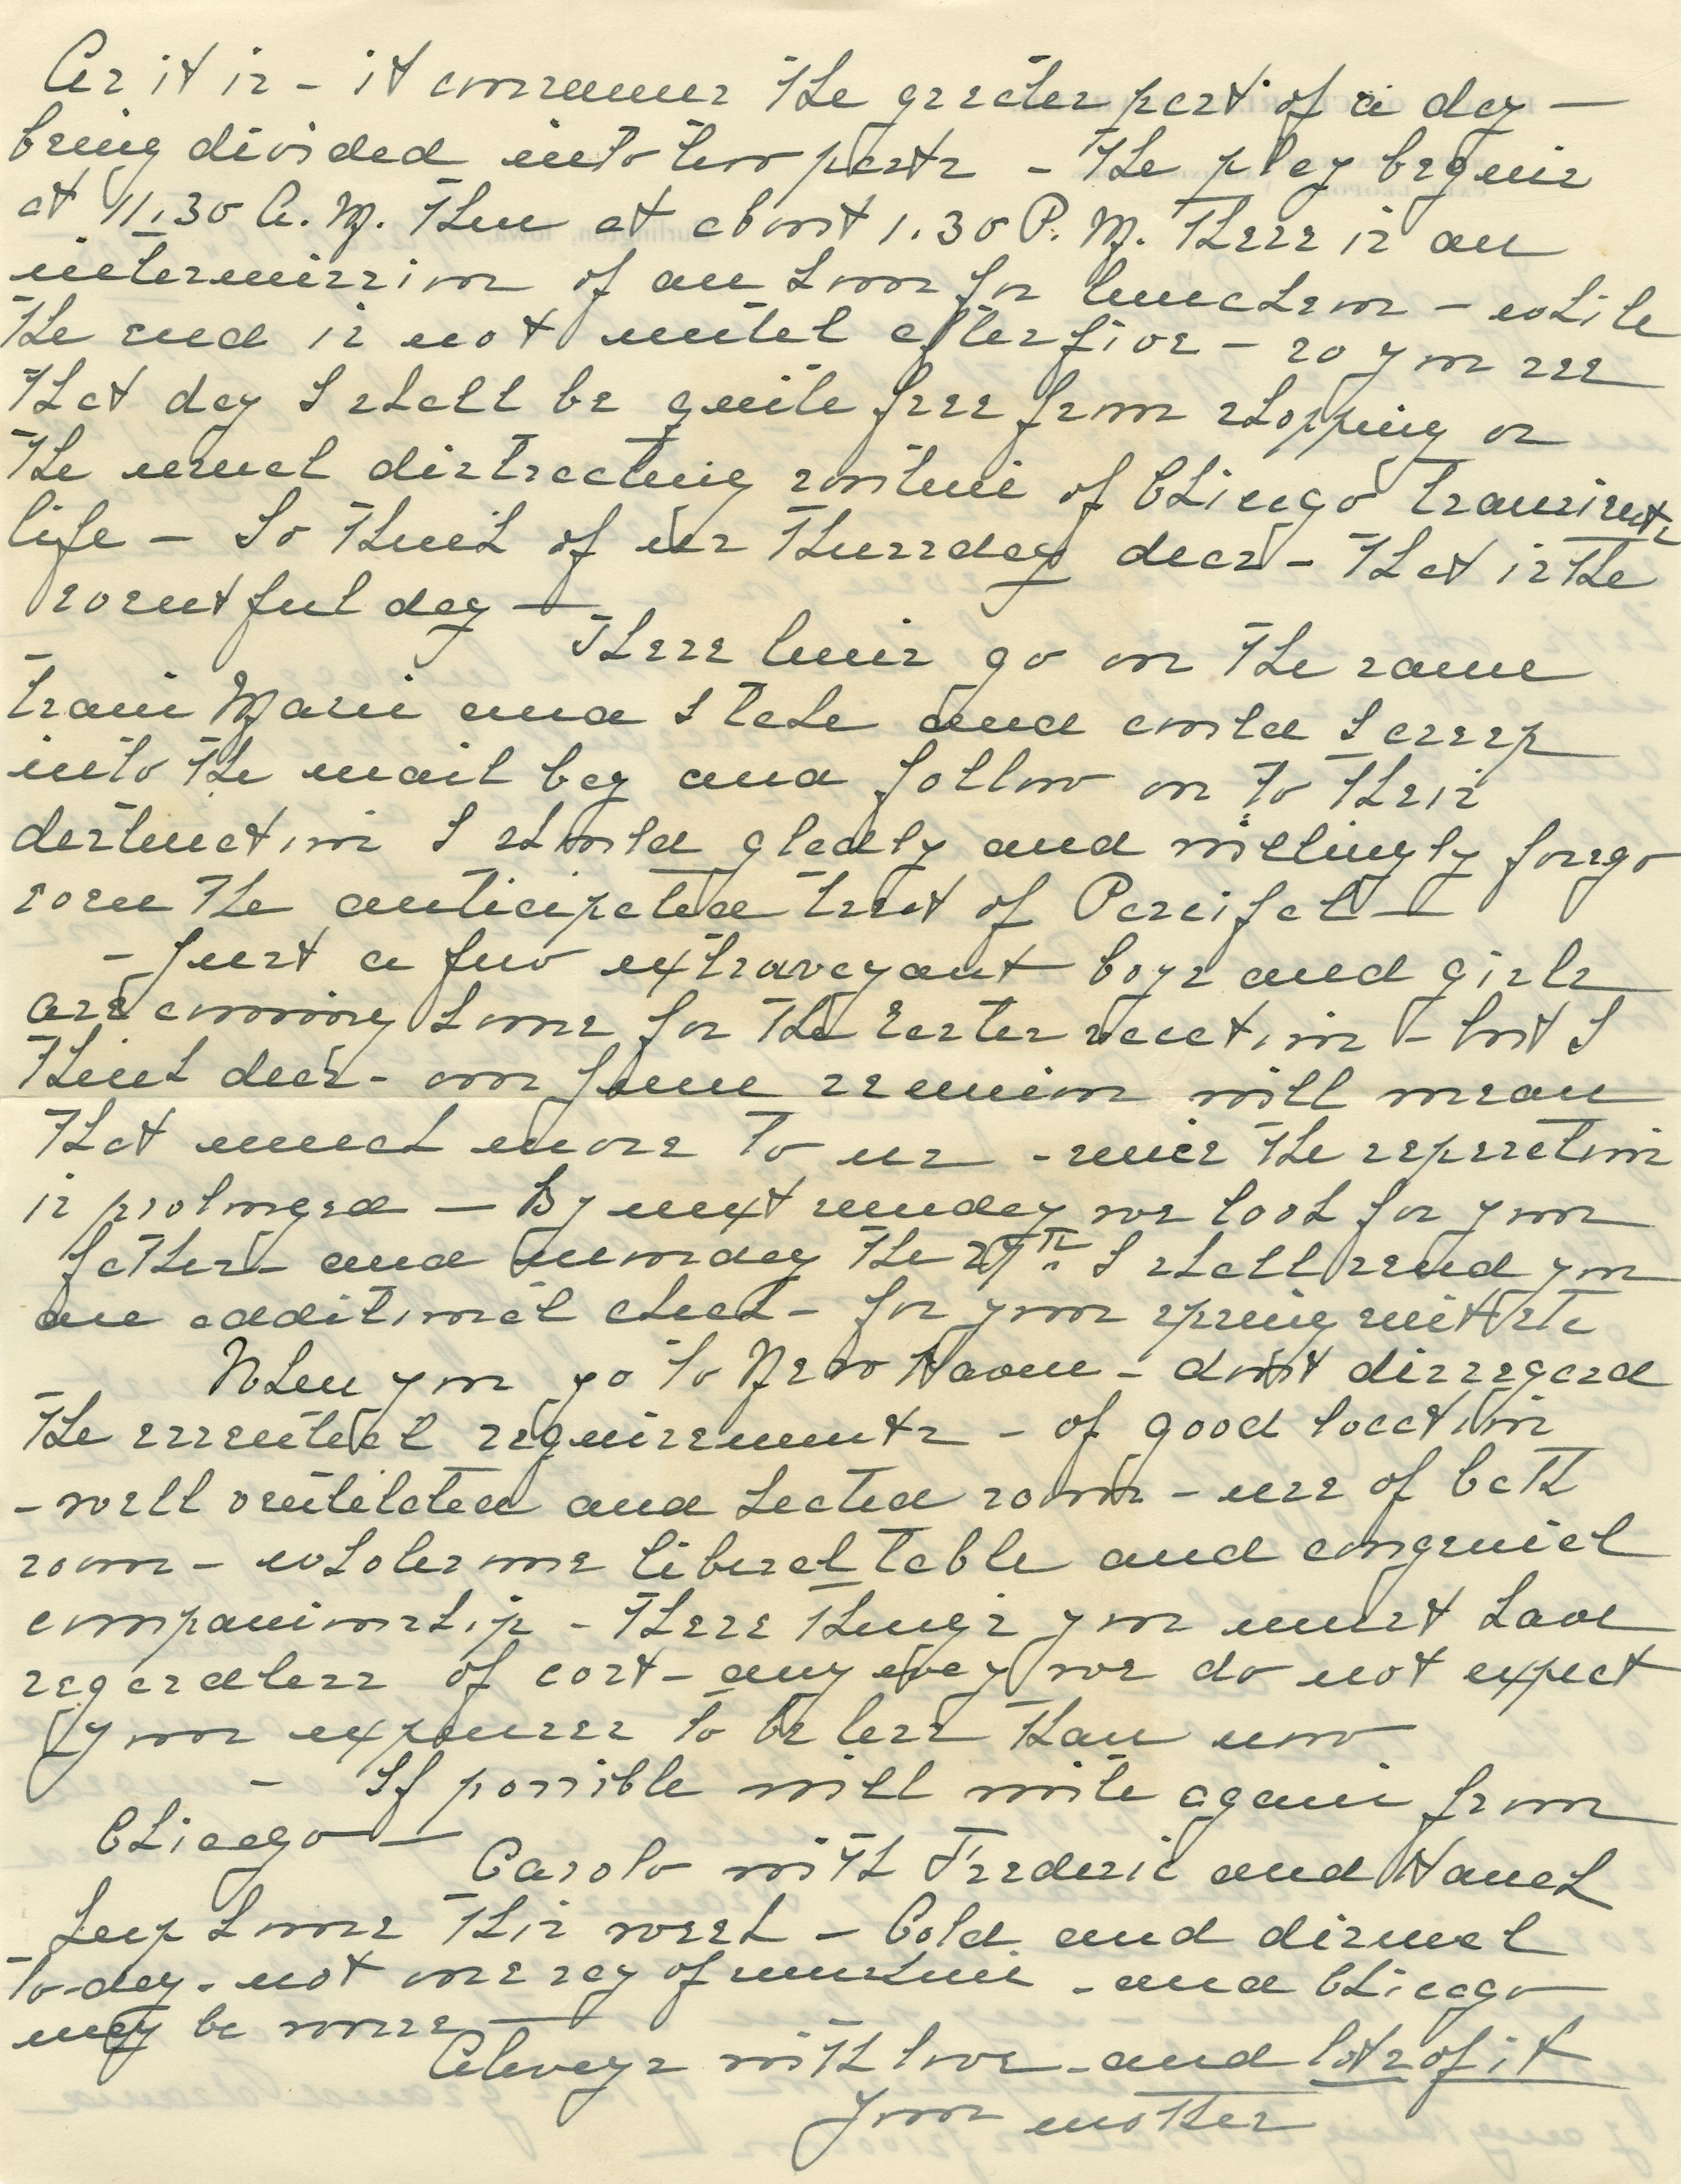 As it is - it consumes the greater part of a day -
being divided into two parts - The play begins
at 11.30 A.M. Then at about 1.30 P.M. There is an
intermission of an hour for luncheon - while
The end is not until after five - so you see
That day I shall be quite free from shopping or
The usual distracting routine of Chicago transients
life - So Think of us Thursday dear - That is The
eventful day -
These lines go on The same
train Marie and I take and could I creep
into The mail bag and follow on To Their
destination I should gladly and willingly forego
even The anticipated treat of Parsifal -
- Just a few extravagant boys and girls
are coming home for The Easter vacation - but I
Think dear - our June reunion will mean
That much more To us - since The separation
is prolonged - By next sunday we look for your
father - and monday The 27th. I shall send you
an additional check - for your spring suit etc
When you go To New Haven - don't disregard
The essential requirements - of good location
- well ventilated and heated room - use of bath
room - wholesome liberal Table and congenial
companionship - These Things you must have
regardless of cost - any way we do not expect
your expenses To be less Than now
- If possible will write again from
Chicago -
Carolo with Frederic and Hanch
keep home This week - Cold and dismal
To-day - not one ray of sunshine - and Chicago
may be worse -
Always with love - and lots of it
Your mother